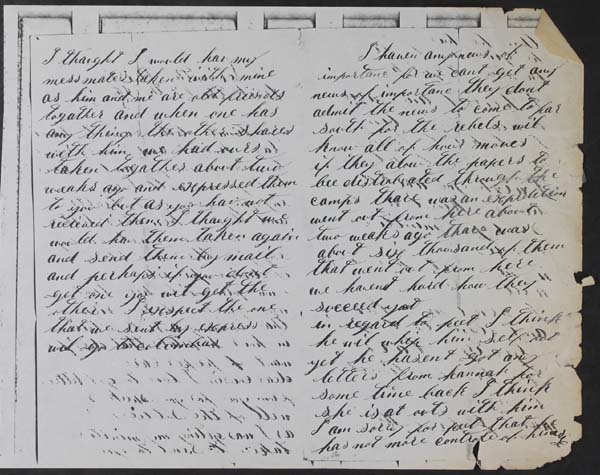 I thaught I would hav my
messmates taken with mine
as him and me are old friends
togather and when one has
any thing the other shares
with him we had ours
taken togather about two
weaks ago and expressed them
to you but as you hav not
recieved them I thaught we
would hav them taken again
and send them by mail
and perhaps if you dont
get one you will get the
other I expect the one
that we sent by express
will go to
I havent any news of
importanc for we cant get any
news of importanc they dont
admit the news to come to far
south for the rebels wil
know all of hour moves
if they alow the papers to
bee distrabated through the
camps thare was an expedition
went out from here about
two weaks ago thare was
about six thousand of them
that went out from here
we havent hard how they
succeed yet
in regard to put I think
he wil whip him self
yet he hasent got any
letters from hannah for
some time back I think
she is at outs with him
I am sorry for put that he
has not more controle of himself